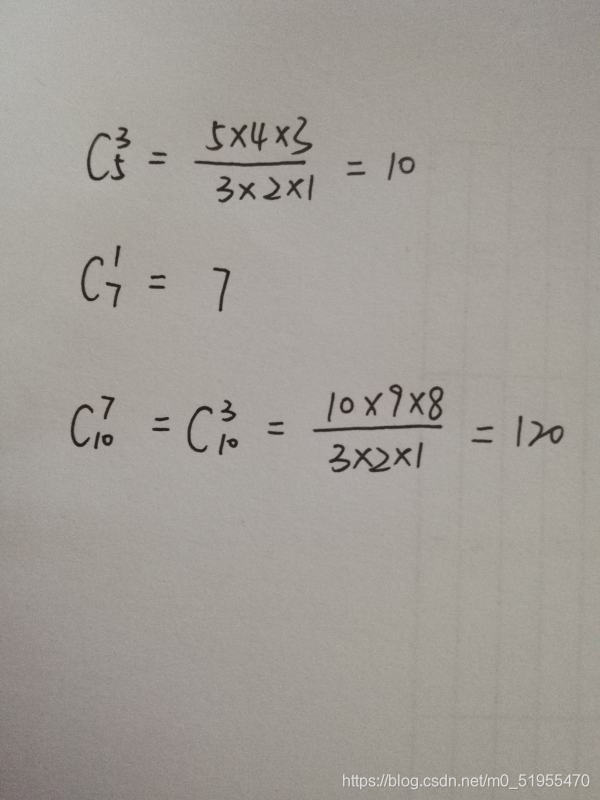 C₅³ = (5×4×3)/(3×2×1) = 10
C₇¹ = 7
C₁₀⁷ = C₁₀³ = (10×9×8)/(3×2×1) = 120
https://blog.csdn.net/m0_51955470